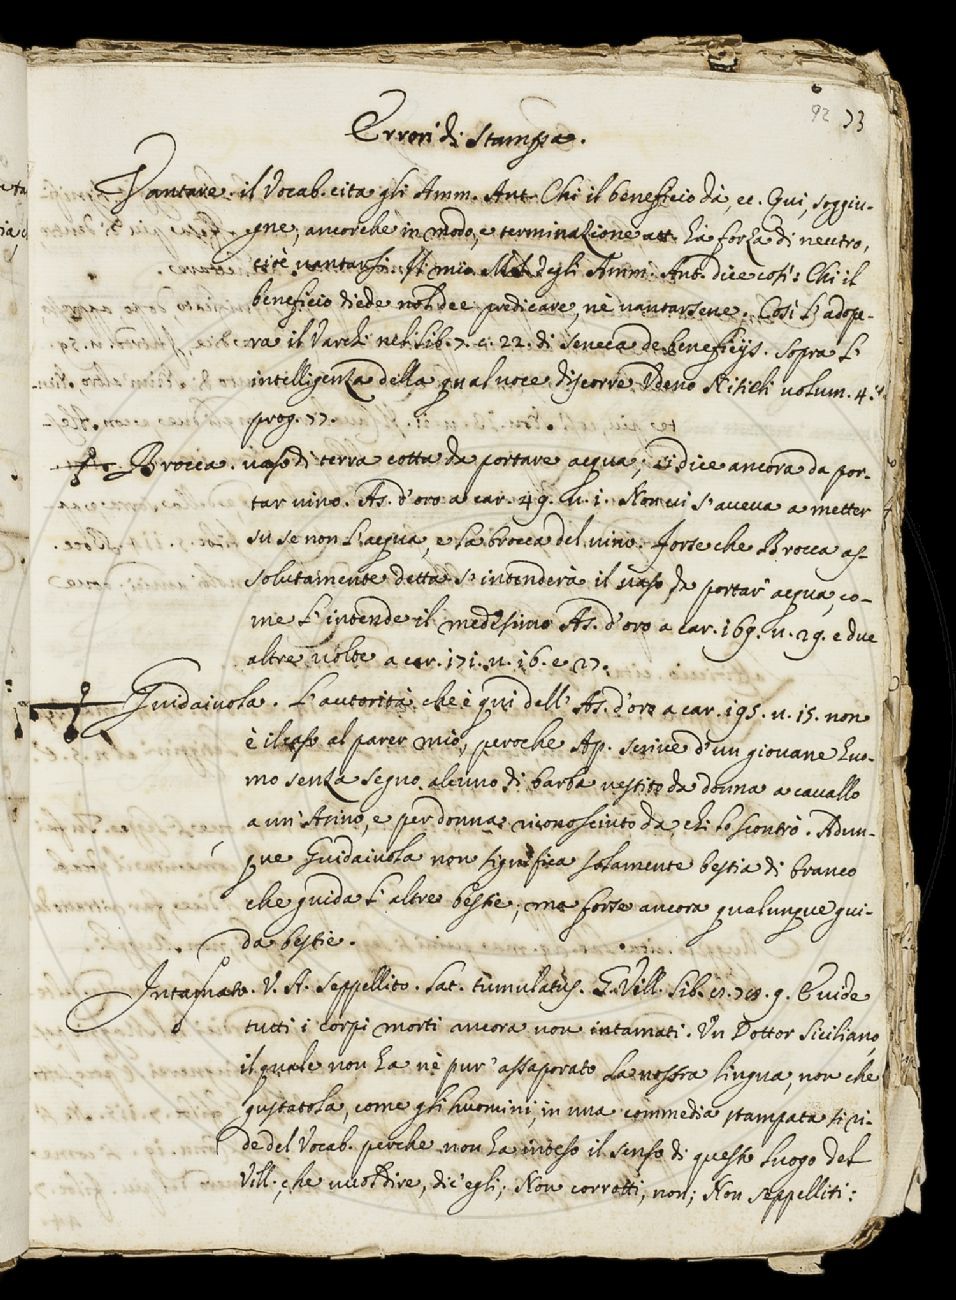 92 73
Errori di Stampa.
Vantare. il Vocab. cita gli Amm. Ant. Chi il beneficio dà, ec. Qui, soggiu-
gne, ancorche in modo, e terminazione att. hà forza di neutro,
cioè vantarsi. Il mio M.S. degli Amm. Ant. dice così: Chi il
beneficio diede nol dee predicare, nè vantarsene. Così l'adope-
ra il Varchi nel lib. 7. c. 22. di Seneca de beneficijs. sopra l'
intelligenza della qual voce discorre Udeno Nisieli volum. 4.
prog. 77.
Brocca. vaso di terra cotta da portare acqua; Si dice ancora da por-
tar vino. As. d'oro a car. 49. u. 1. Non vi s'aveva a metter
su se non l'acqua, e la brocca del vino. Forse che Brocca as-
solutamente detta s'intenderà il vaso da portar acqua, co-
me l'intende il medesimo As. d'oro a car. 169. u. 29. e due
altre volte a car. 171. u. 16. e 27.
Guidaiuola. L'autorità che è qui dell'As. d'oro a car. 195. u. 15. non
è il caso al parer mio, peroche Ap. scrive d'un giovane huo-
mo senza segno alcuno di barba vestito da donna a cavallo
a un'Asino, e per donna riconosciuto da chi lo scontrò. Adun-
que Guidaiuola non significa solamente bestia di branco
che guida l'altre bestie, ma forse ancora qualunque gui-
da bestie.
Intamato. V. A. Seppellito. Lat. tumulatus. G. Vill. lib. 9. Evide
tutti i corpi morti ancora non intamati. Un Dottor Siciliano,
il quale non ha nè pur'assaporato la nostra lingua, non che
gustatola, come gli huomini, in una commedia stampata si ri-
de del Vocab. perche non ha inteso il senso di questo luogo del
Vill. che vuol dire, dic'egli; Non corrotti, non; Non seppelliti: